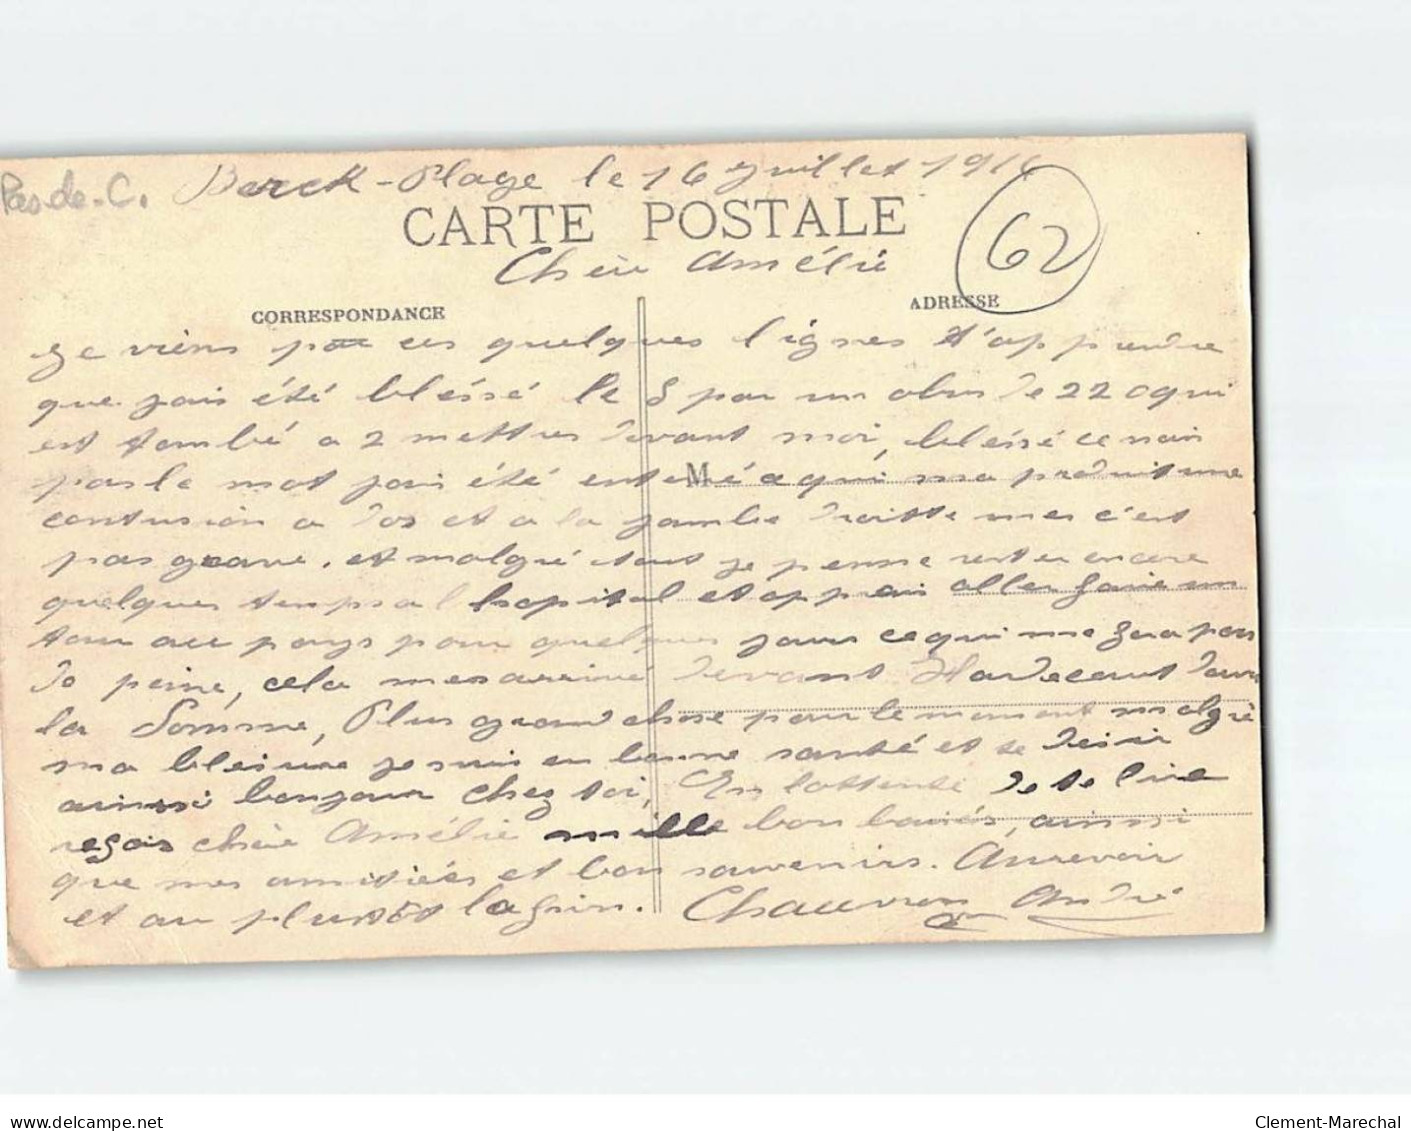 Pas-de-C. Berck-Plage le 16 Juillet 1916
CARTE POSTALE
62
Chère Amélie
CORRESPONDANCE
ADRESSE
Je viens par ces quelques lignes t'apprendre
que jais été bléssé le 8 par un obus de 220 qui
est tombé a 2 mettres devant moi, bléssé ce nais
pas le mot jais été enterré a qui ma produit une
M
contusion a dos et a la jambe droitte mes c'est
pas grave. et malgré tout je pense rester encore
quelques temps a l hopital et apprais aller faire un
tour au pays pour quelques jours ce qui me fera pas
do peine, cela mes arrivé devant Hardecourt dans
la Somme, Plus grand chose pour le moment malgré
ma blesure je suis en bonne santé et te désir
ainssi bonjour chez toi, En lattente de te lire
reçois chère Amélie mille bon baisés, ainssi
que mes amitiées et bon souvenirs. Aurevoir
et au plustôt lafin. Chauvron André
delcampe.net
Clement-Marechal